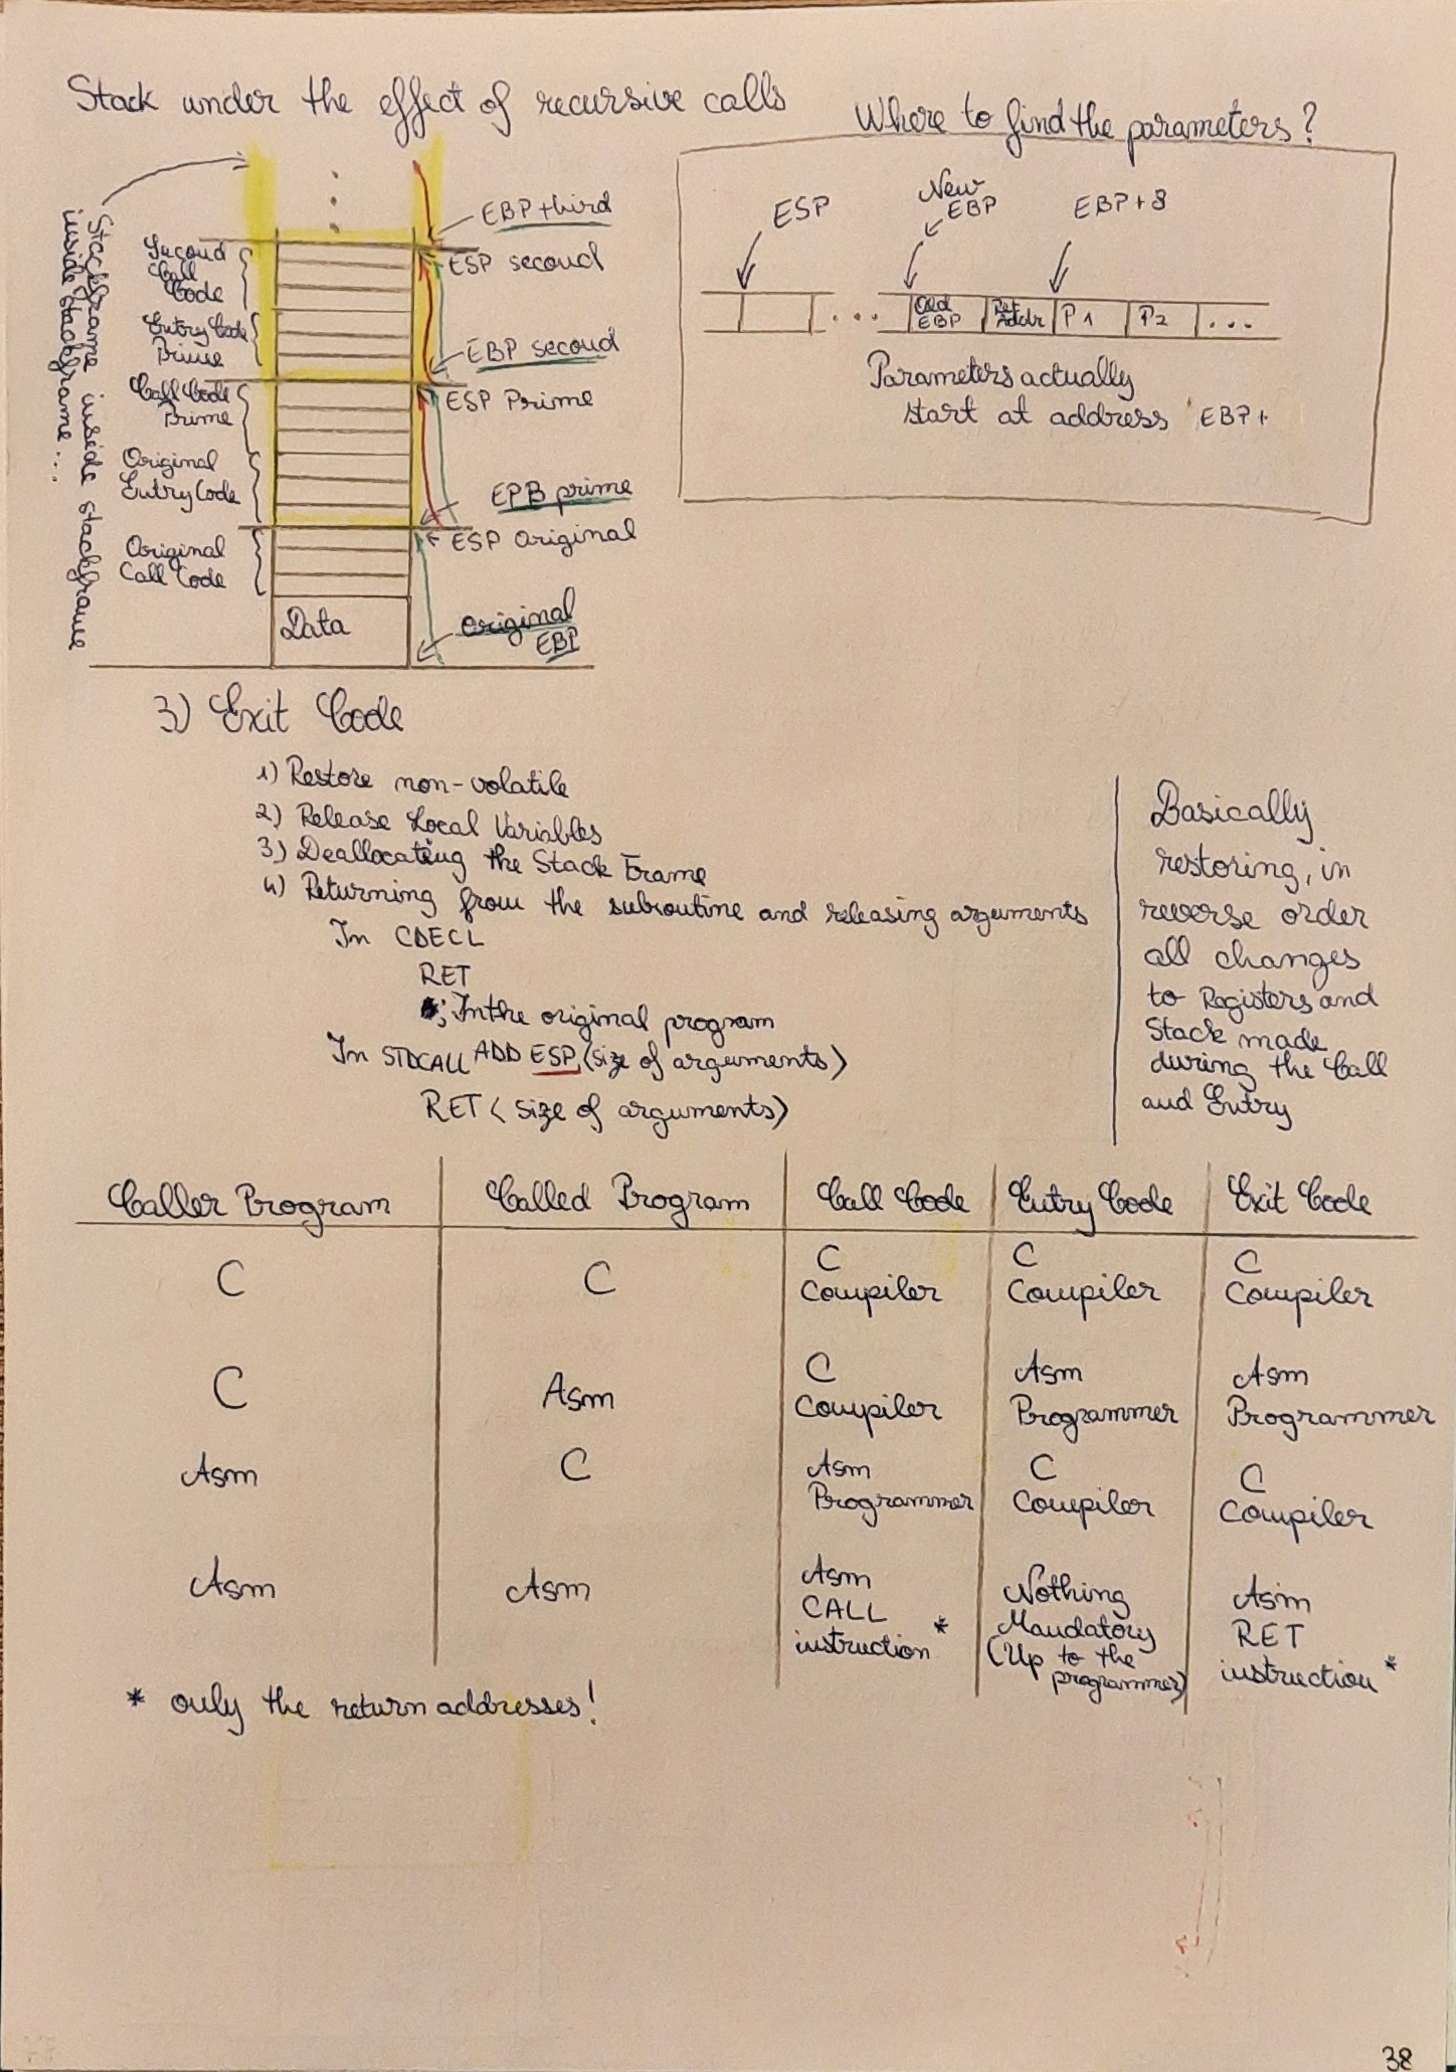 Stack under the effect of recursive calls
Stackframe inside stackframe
inside stackframe...
Second
Call
Code
Entry Code
Prime
Call Code
Prime
Original
Entry Code
Original
Call Code
Data
EBP third
ESP second
EBP second
ESP Prime
EPB prime
ESP Original
Original
EBP
Where to find the parameters?
ESP
New
EBP
EBP+8
...
Old
EBP
Ret
Addr
P1
P2
...
Parameters actually
start at address EBP+
3) Exit Code
1) Restore non-volatile
2) Release Local Variables
3) Deallocating the Stack Frame
4) Returning from the subroutine and releasing arguments
In CDECL
RET
; In the original program
In STDCALL ADD ESP, (size of arguments)
RET (size of arguments)
Basically
restoring, in
reverse order
all changes
to Registers and
Stack made
during the Call
and Entry
Caller Program Called Program Call Code Entry Code Exit Code
C C C Compiler C Compiler C Compiler
C Asm C Compiler Asm Programmer Asm Programmer
Asm C Asm Programmer C Compiler C Compiler
Asm Asm Asm CALL instruction * Nothing Mandatory (Up to the programmer) Asm RET instruction *
* only the return addresses!
38